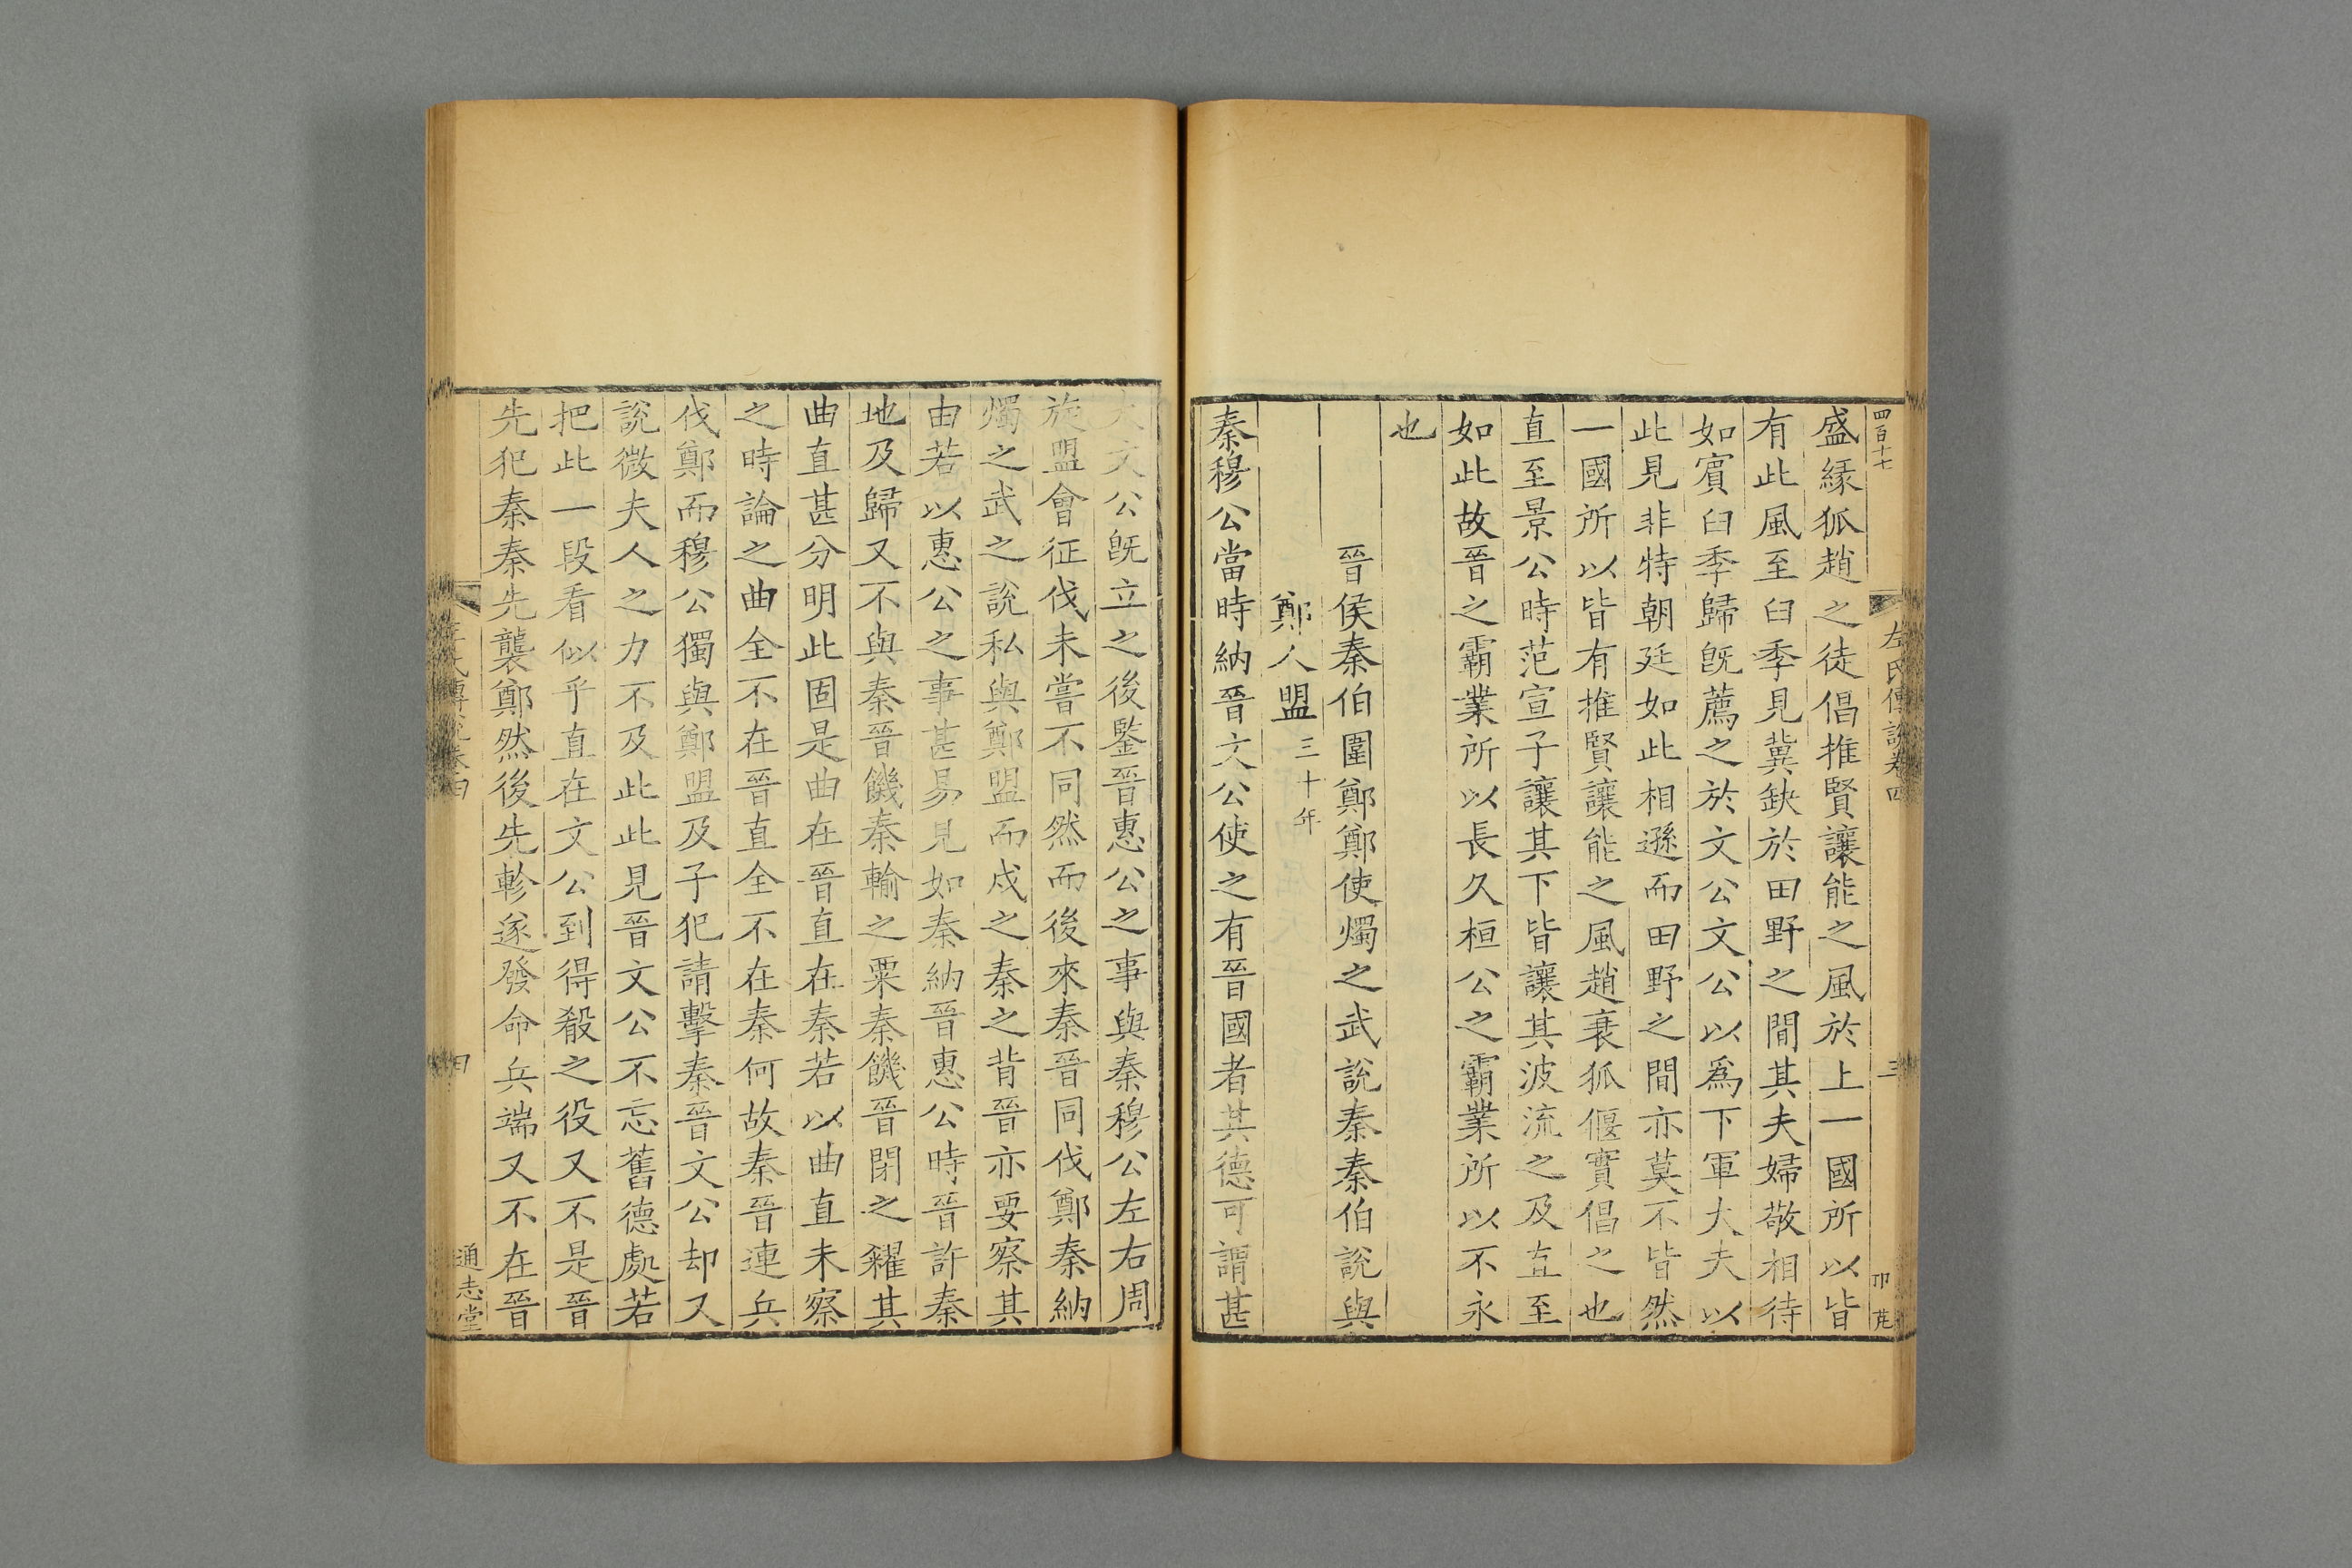 四百十七
左氏傳說卷四
三
盛緣狐趙之徒倡推賢讓能之風於上一國所以皆
有此風至臼季見冀缺於田野之間其夫婦敬相待
如賓臼季歸旣薦之於文公文公以爲下軍大夫以
此見非特朝廷如此相遜而田野之間亦莫不皆然
一國所以皆有推賢讓能之風趙衰狐偃實倡之也
直至景公時范宣子讓其下皆讓其波流之及直至
如此故晉之霸業所以長久桓公之霸業所以不永
也
晉侯秦伯圍鄭鄭使燭之武說秦秦伯說與
鄭人盟三十年
秦穆公當時納晉文公使之有晉國者其德可謂甚
大文公旣立之後鑒晉惠公之事與秦穆公左右周
旋盟會征伐未嘗不同然而後來秦晉同伐鄭秦納
燭之武之說私與鄭盟而戍之秦之背晉亦要察其
由若以惠公之事甚易見如秦納晉惠公時晉許秦
地及歸又不與秦晉饑秦輸之粟秦饑晉閉之糴其
曲直甚分明此固是曲在晉直在秦若以曲直未察
之時論之曲全不在晉直全不在秦何故秦晉連兵
伐鄭而穆公獨與鄭盟及子犯請擊秦晉文公却又
說微夫人之力不及此此見晉文公不忘舊德處若
把此一段看似乎直在文公到得殽之役又不是晉
先犯秦秦先襲鄭然後先軫遂發命兵端又不在晉
通志堂